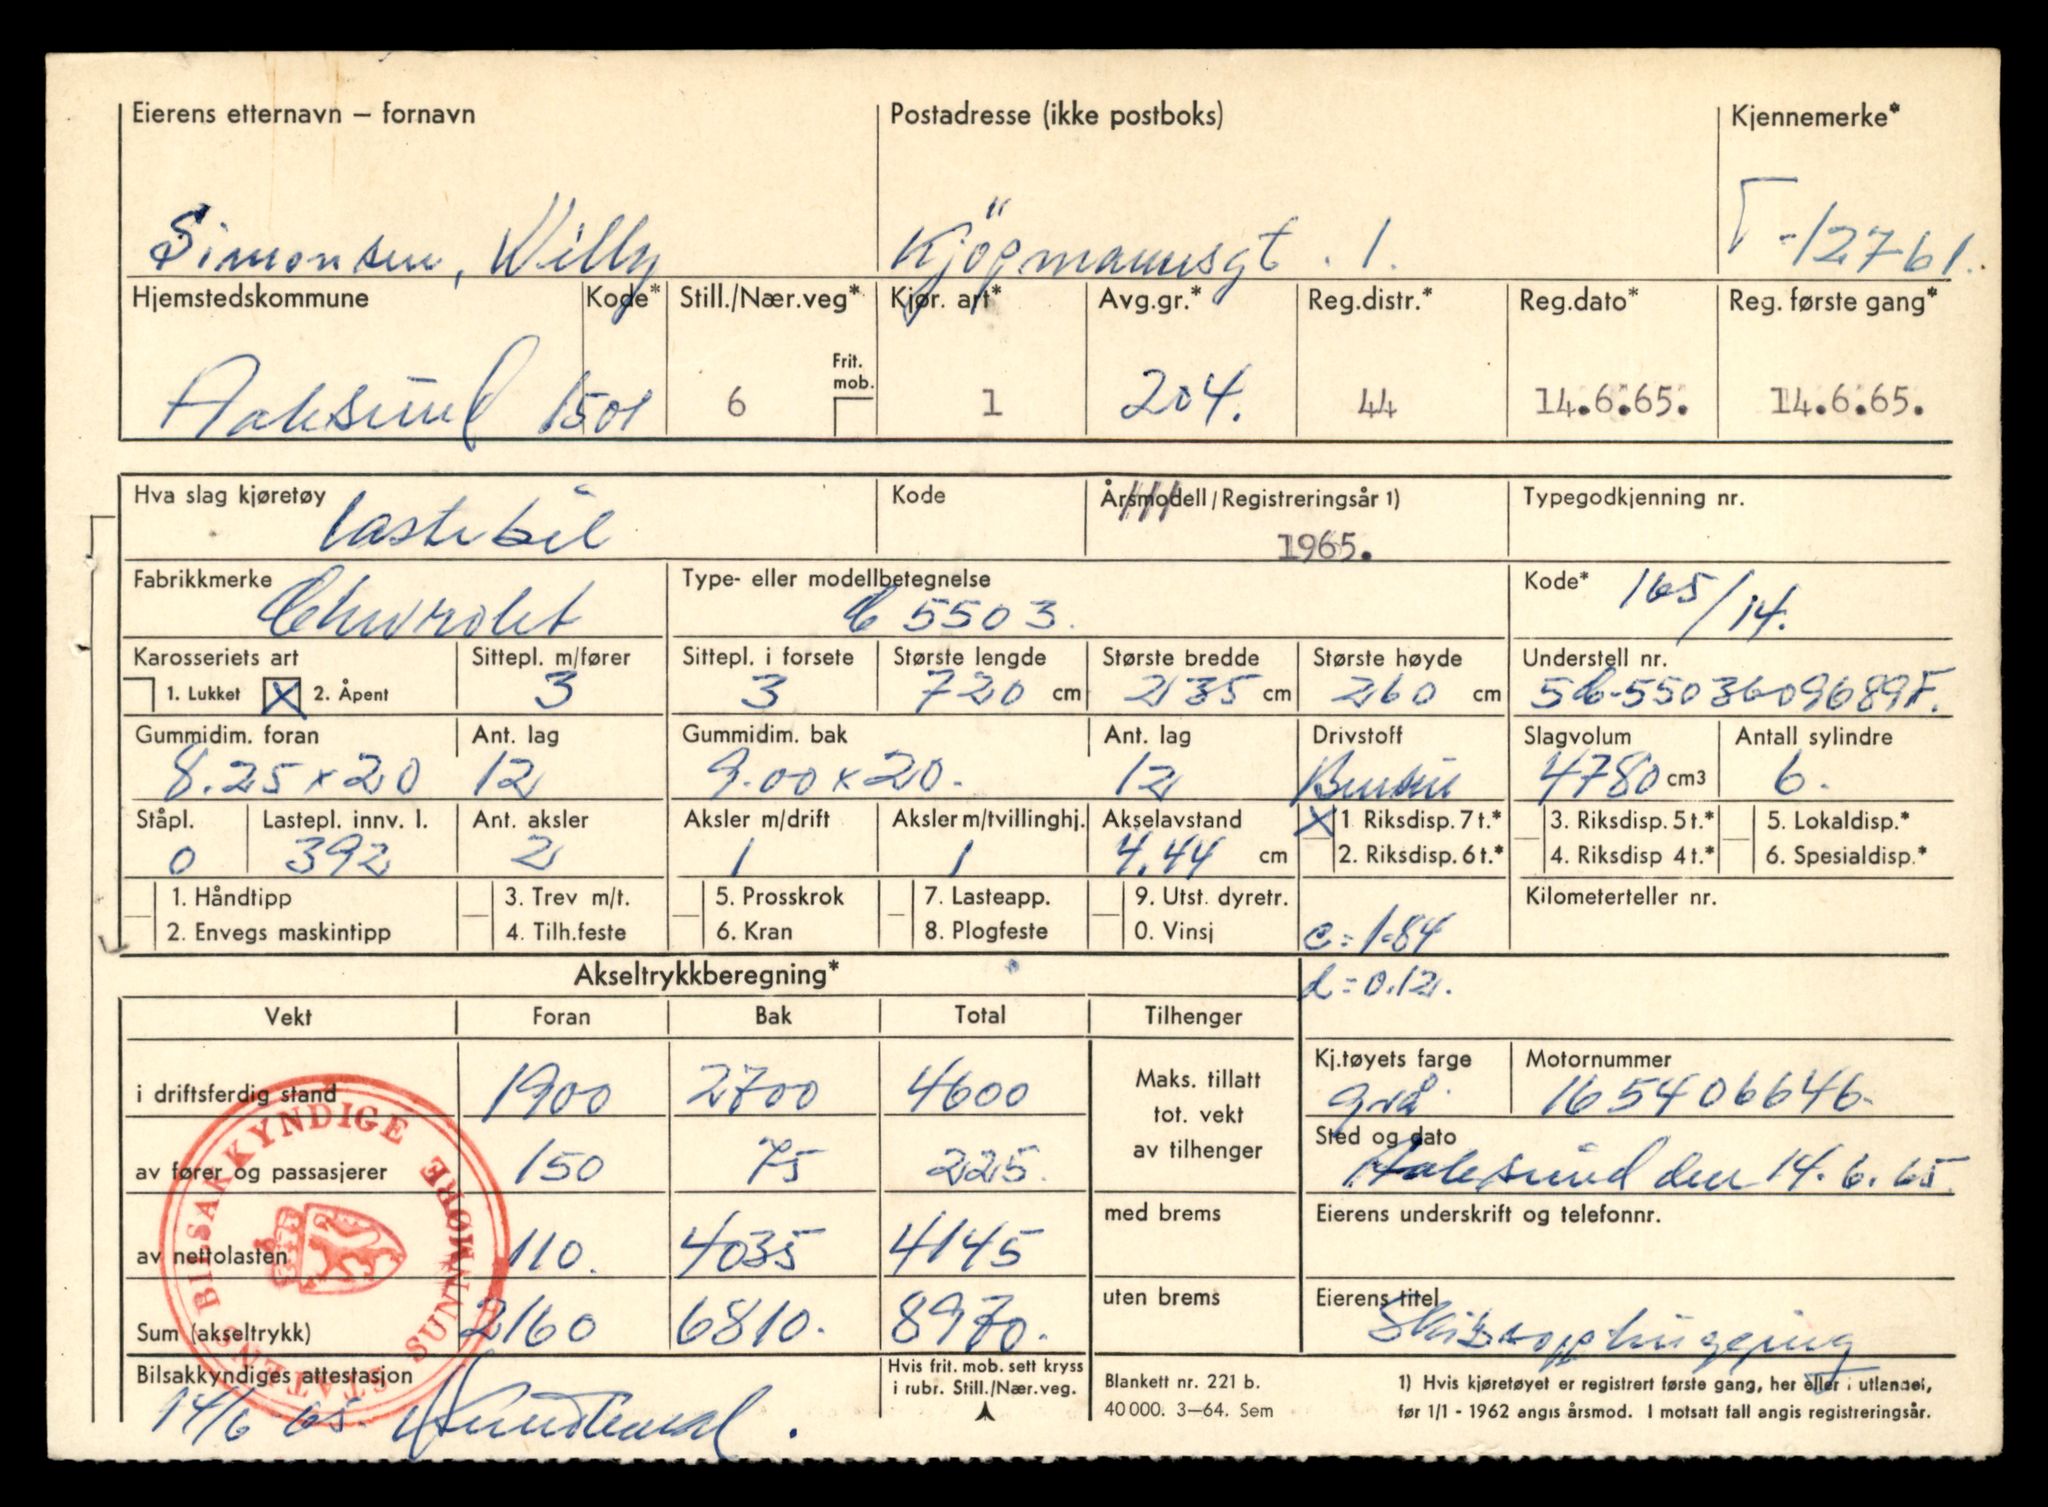 Eierens etternavn – fornavn Postadresse (ikke postboks) Kjennemerke*
Simonsen, Willy Kjöpmannsgt. 1. T-12761.
Hjemstedskommune Kode* Still./Nær.veg* Kjør. art* Avg.gr.* Reg.distr.* Reg.dato* Reg. første gang*
Frit. mob.
Aalesund 1501 6 1 204. 44 14.6.65. 14.6.65.
Hva slag kjøretøy Kode Årsmodell/Registreringsår 1) Typegodkjenning nr.
lastebil 1965.
Fabrikkmerke Type- eller modellbetegnelse Kode*
Chevrolet C 5503. 165/14.
Karosseriets art Sittepl. m/fører Sittepl. i forsete Største lengde Største bredde Største høyde Understell nr.
1. Lukket X 2. Åpent 3 3 720 cm 235 cm 260 cm 5C-55036-09689F.
Gummidim. foran Ant. lag Gummidim. bak Ant. lag Drivstoff Slagvolum Antall sylindre
8.25 x 20 12 9.00 x 20. 12 Bensin 4780 cm3 6.
Ståpl. Lastepl. innv. l. Ant. aksler Aksler m/drift Aksler m/tvillinghj. Akselavstand X 1 Riksdisp. 7 t.* 3. Riksdisp. 5 t.* 5. Lokaldisp.*
0 392 2 1 1 4.44 cm 2. Riksdisp. 6 t.* 4. Riksdisp 4 t.* 6. Spesialdisp.*
1. Håndtipp 3. Trev m/t. 5. Prosskrok 7. Lasteapp. 9. Utst. dyretr. Kilometerteller nr.
2. Envegs maskintipp 4. Tilh.feste 6. Kran 8. Plogfeste 0. Vinsj c = 1.84
Akseltrykkberegning* d = 0.12.
Vekt Foran Bak Total Tilhenger
i driftsferdig stand 1900 2700 4600 Maks. tillatt tot. vekt av tilhenger
Kj.tøyets farge Motornummer
grå 165406646.
av fører og passasjerer 150 75 225.
Sted og dato
Aalesund den 14.6.65
av nettolasten 110. 4035 4145 med brems Eierens underskrift og telefonnr.
Sum (akseltrykk) 2160 6810. 8970. uten brems Eierens titel
Skipsopphugging
Bilsakkyndiges attestasjon Hvis frit. mob. sett kryss i rubr. Still./Nær.veg.
14/6-65.
Blankett nr. 221 b.
40 000. 3–64. Sem
1) Hvis kjøretøyet er registrert første gang, her eller i utlandet,
før 1/1 - 1962 angis årsmod. I motsatt fall angis registreringsår.
STATENS BILSAKKYNDIGE SUNNMØRE